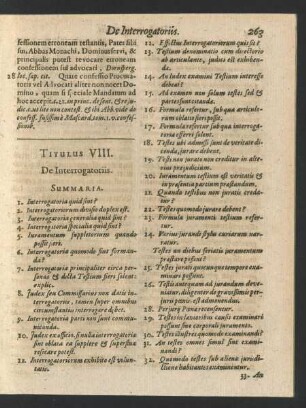 De Interrogatoriis. 263
fessionem erroneam testantis, Pater filii
sui, Abbas Monachi, Dominus servi, &
principalis potest revocare erroneam
confessionem sui advocati, Dornsberg.
28 Int. sup. tit. Quare confessio Procura-
toris vel Advocati aliter non nocet Do-
mino, quam si speciale Mandatum ad
hoc accepit.
confess. fusissimè Mascard.
fessionib.
TITULUS VIII.
De Interrogatoriis.
SUMMARIA.
1. Interrogatoria quid sint?
2. Interrogatoriorum divisio duplex est.
3. Interrogatoria generalia quid sint?
4. Interrogatoria specialia quid sint?
5. Iuramentum suppletorium quando
posse juri.
6. Interrogatoria quomodo sint forman-
da?
7. Interrogatoria principaliter circa per-
sonas & dicta Testium fieri solent:
explic.
8. Iudex seu Commissarius non datis in-
terrogatoriis, tamen super omnibus
circumstantiis interrogare debet.
9. Interrogatoria parti non sunt commu-
nicanda.
10. Iudex ex officio, simulac interrogatoria
sint oblata ea supplere & superflua
resecare potest.
11. Interrogatoriorum exhibitio est volun-
taria.
12. Effectus Interrogatoriorum quis sit?
13. Testium denominatio cum directorio
ad articulante, judici est exhiben-
da.
14. An Iudex examini Testium interesse
debeat?
15. Ad examen non solum testes sed &
partes sunt citanda.
16. Formula refertur, sub qua articula-
ta referri solent.
17. Formula refertur sub qua interroga-
toria referri solent.
18. Testes ubi admoniti sunt de veritate di-
cenda, jurare debent.
19. Testi non jurato non creditur in alte-
rius præjudicium.
20. Iuramentum testium est veritatis & in
præsentia partium præstandum.
21. Quando testibus non juratis credi-
tur?
22. Formula juramenti testium refer-
tur.
23. Forma jurandi stylus curiarum narra-
tur.
24. Testes an diebus feriatis juramentum
præstare possint?
25. Testes jurati quocunque tempore exa-
minari possunt.
26. Testes antequam ad jurandum deve-
niatur, diligenter de gravissimis per-
jurii pœnis, est admonendus.
27. Perjurii Pœna recensentur.
28. Testes in levioribus causis examinari
possunt sine corporali juramento.
29. Testes quomodo sint examinandi?
30. An testes simul vel sine omnes sint
examinandi?
31. Testes illustres quomodo examinan-
di?
32. Quomodo testes sub aliena juridi-
ctione habitantes examinentur.
33. An